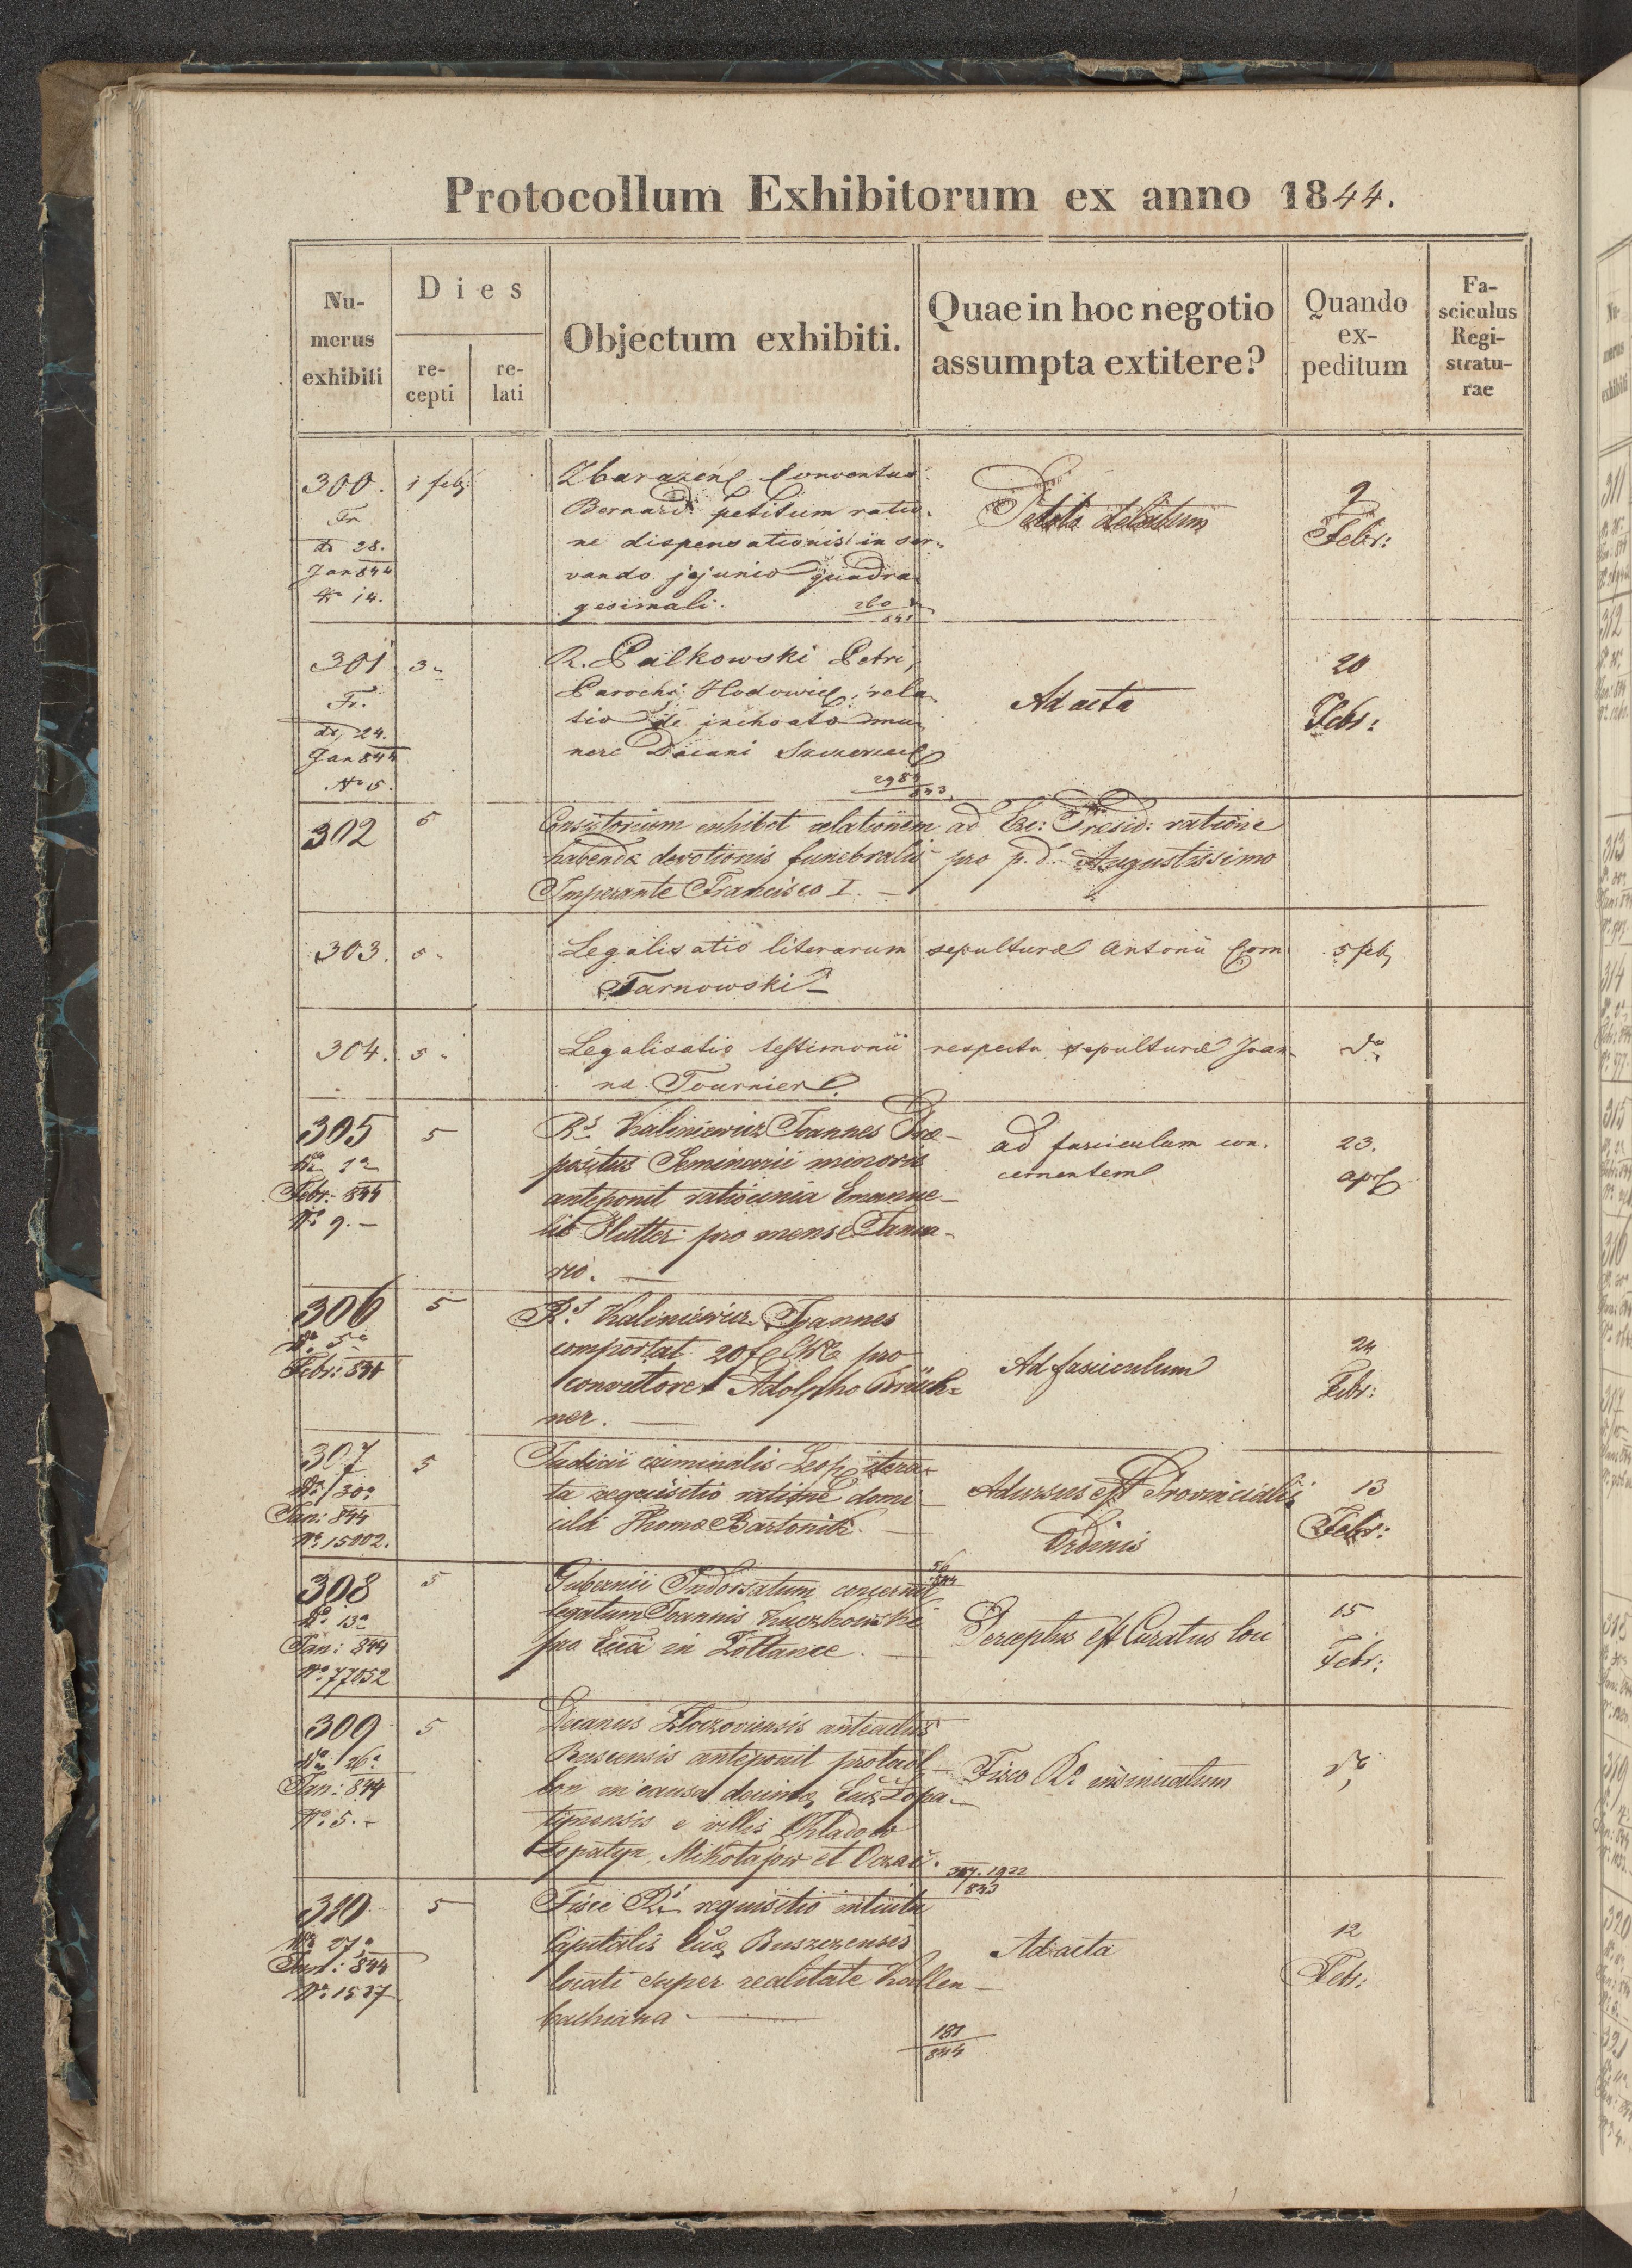 Protocollum Exhibitorum ex anno 1844.
Nu-
merus
exhibiti
Dies
re-
cepti
re-
lati
Objectum exhibiti.
Quae in hoc negotio
assumpta extitere?
Quando
ex-
peditum
Fa-
sciculus
Regi-
stratu-
rae
300. 1 feb:
Fr.
dº 28.
Jan 844
Nº 14.
Conventus
Bernard: petitum ratio-
ne dispensationis in ser-
vando jejunio quadra-
gesimali.
delatum
9
Febr:
301 3
Fr.
24.
Jan 844
Nº 5.
R. Palkowski Petri,
Parochi rela-
tio de inchoato mu-
nere Decani
2984
843
Ad acta
20
Febr:
302 5
Consistorium exhibet relationem ad Exc: Praesid: ratione
habendæ devotionis funebralis pro p. d. Augustissimo
Imperante Francisco I. —
303. 5
Legalisatio literarum sepulturæ Antonii Com. 5 feb
Tarnowski
304. 5
Legalisatio testimonii respectu sepulturæ Joan- dº
næ Tournier
305 5
dº 1ª
Febr: 844
Nº 9. —
Rs Kaliniewicz Joannes Præ-
positus Seminarii minoris
anteponit ratiocinia Emanue-
lis Hutter pro mense Janua-
rio. —
ad fasciculum con-
cernentem
23.
apr
306 5
dº 5ª
Febr: 844
Rs Kaliniewicz Joannes
comportat 20 f pro
convictore Adolpho Brück-
ner. —
Ad fasciculum
24
Febr:
307 5
dº 30ª
Jan: 844
Nº 15002.
Judicii criminalis Leop itera-
ta requisitio ratione domi-
cilii Thomæ Bartonik. —
est Provincialis
Ordinis
13
Febr:
308 5
dº 13ª
Jan: 844
Nº 77052
56
844
Gubernii Indorsatum concernit
legatum Joannis
pro Ecca in Zoltance. —
Perceptus est Curatus loci
15
Febr:
309 5
dº 26ª
Jan: 844
Nº 5. —
Decanus Zloczoviensis anteactus
Buscensis anteponit protocol-
lon in causa decimæ Ecclæ Lopa-
tynensis e villis Chladow
Lopatyn, Mikołajow et
Fisco Rº insinuatum
dº
310 5
dº 27ª
Jan: 844
Nº 1537
307. 1922
843
Fisci Ri requisitio intuitu
Capitalis Ecclæ Buszczensis
locati super realitate Kallen-
bachiana —
181
844
Ad acta
12
Feb: